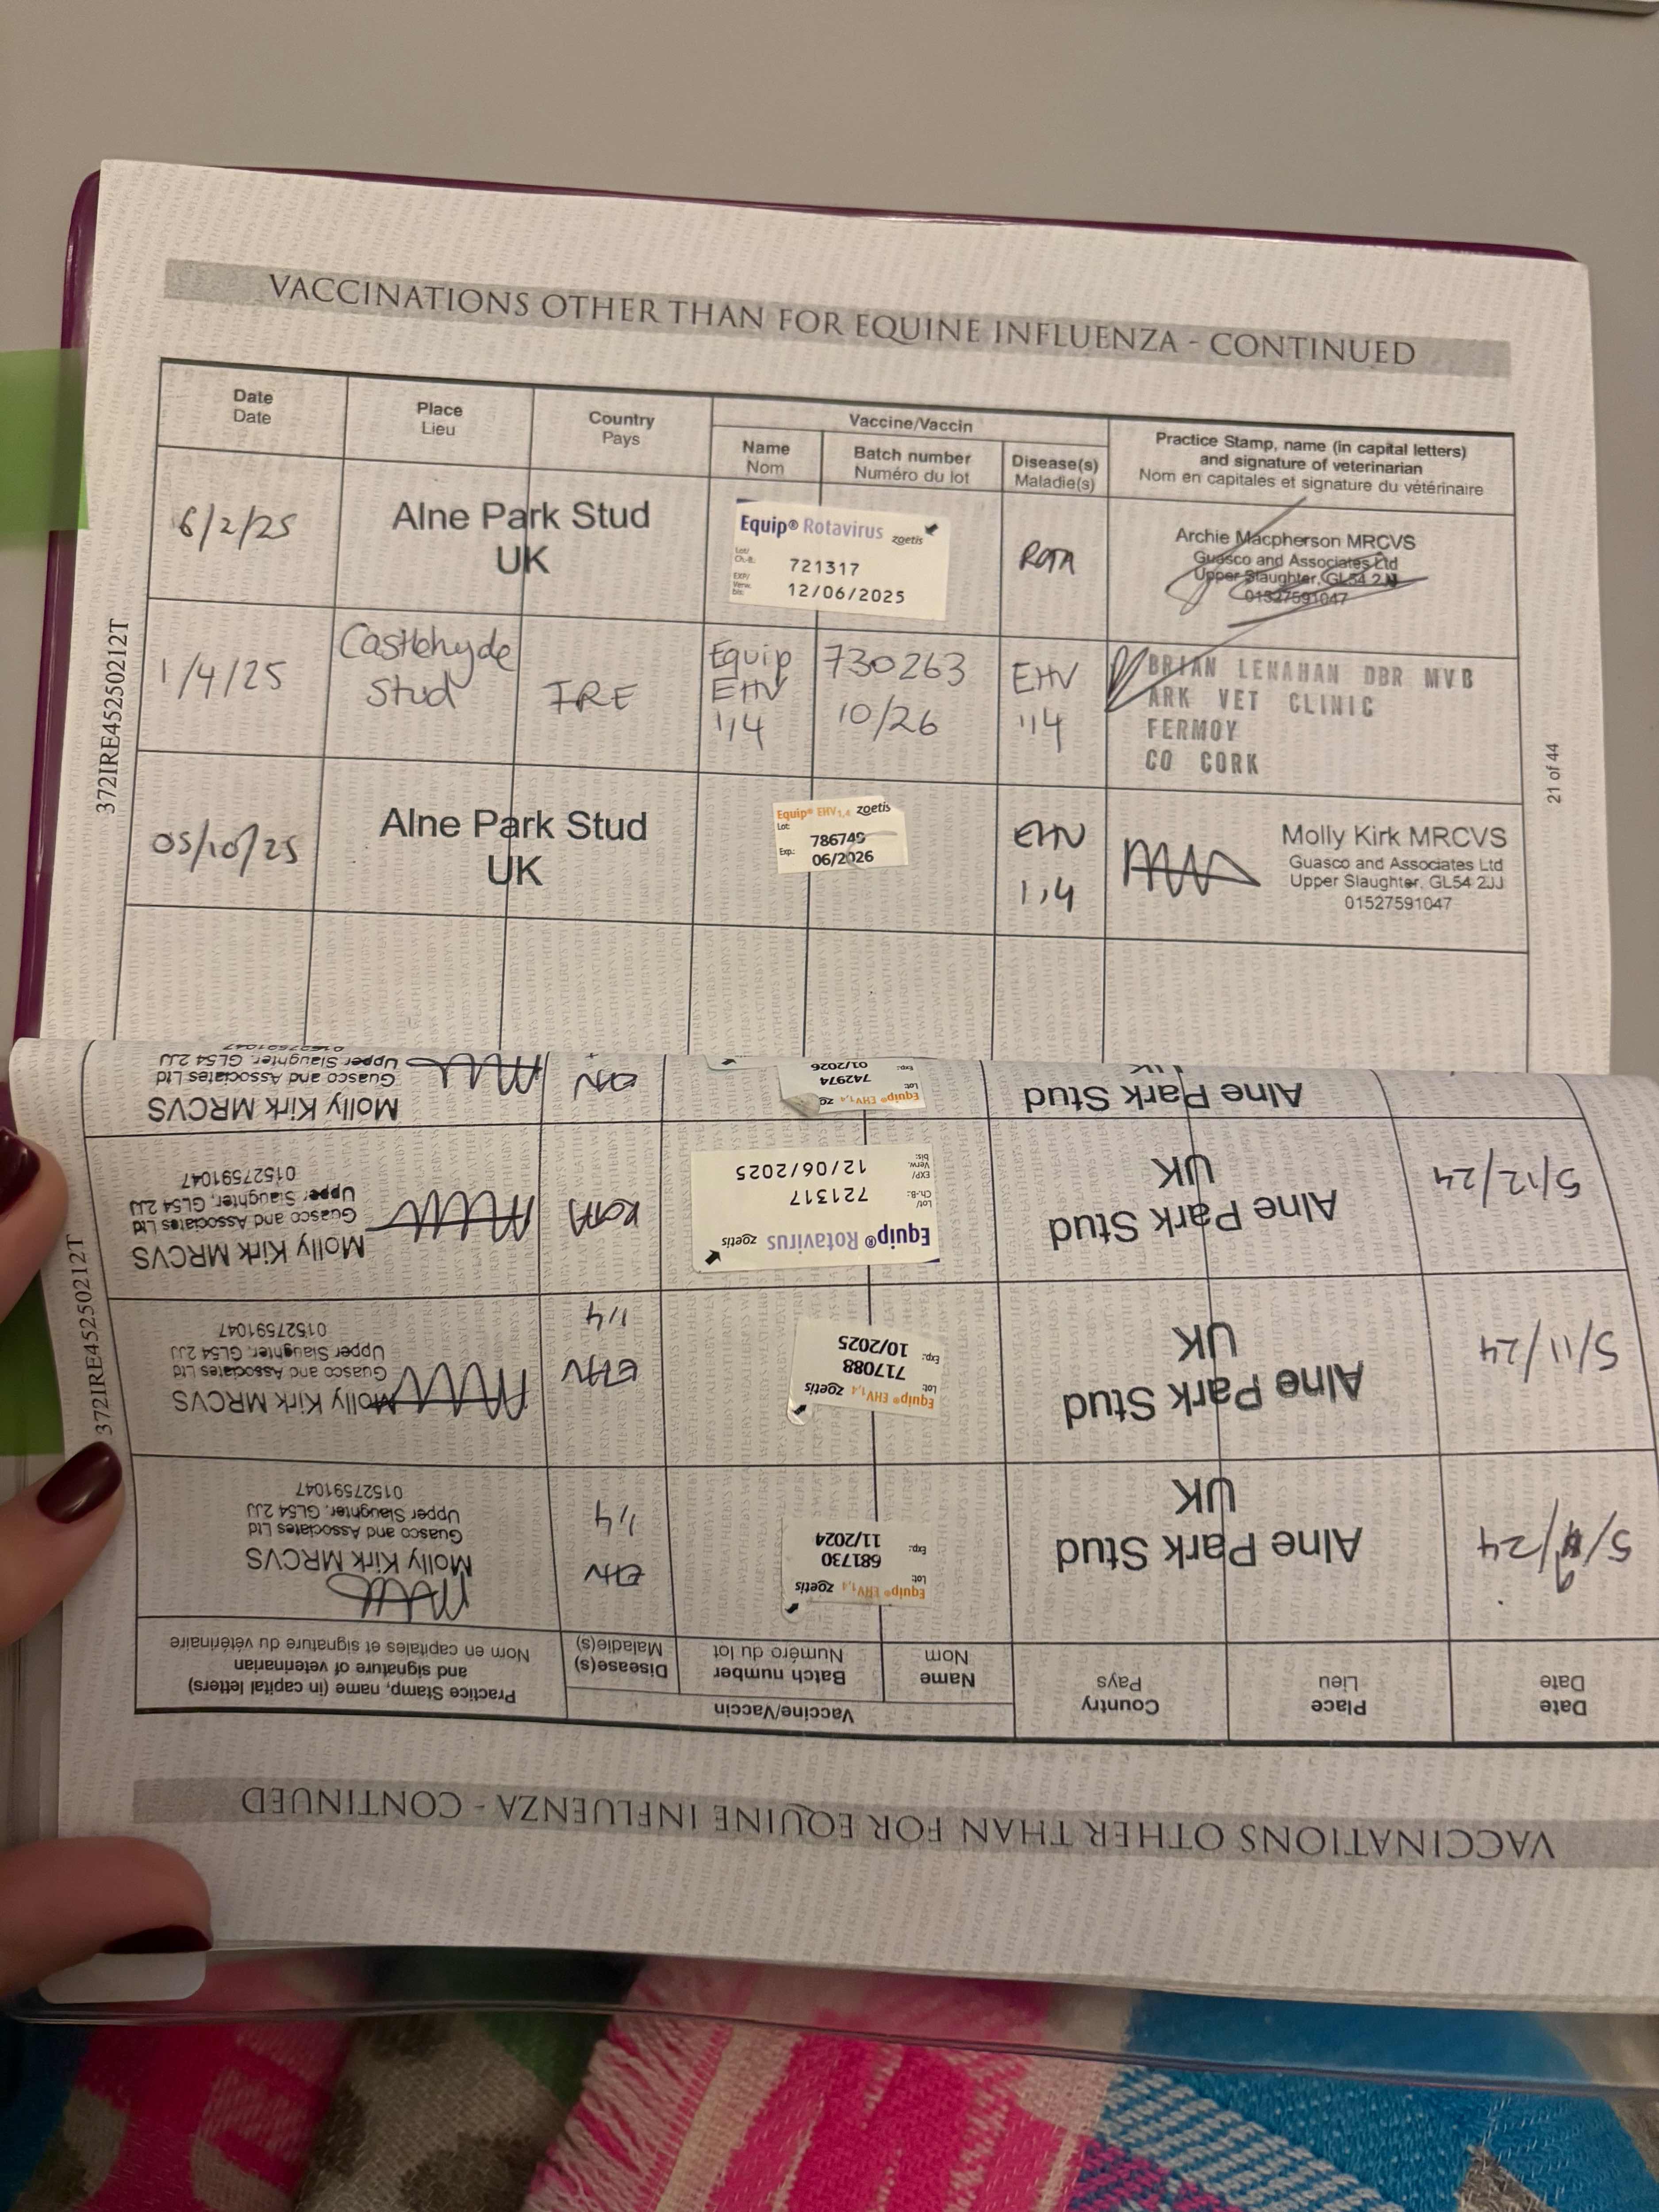 VACCINATIONS OTHER THAN FOR EQUINE INFLUENZA - CONTINUED
Date
Date
Place
Lieu
Country
Pays
Vaccine/Vaccin
Name
Nom
Batch number
Numéro du lot
Disease(s)
Maladie(s)
Practice Stamp, name (in capital letters)
and signature of veterinarian
Nom en capitales et signature du vétérinaire
6/2/25
Alne Park Stud
UK
Equip® Rotavirus
zoetis
Lot/
Ch.-B.:
721317
EXP/
Verw.
bis:
12/06/2025
ROTA
Archie Macpherson MRCVS
Guasco and Associates Ltd
Upper Slaughter, GL54 2JJ
01527591047
1/4/25
Castlehyde
Stud
IRE
Equip
EHV
1,4
730263
10/26
EHV
1,4
BRIAN LENAHAN DBR MVB
ARK VET CLINIC
FERMOY
CO CORK
05/10/25
Alne Park Stud
UK
Equip® EHV1,4 zoetis
Lot:
786749
Exp.:
06/2026
EHV
1,4
Molly Kirk MRCVS
Guasco and Associates Ltd
Upper Slaughter, GL54 2JJ
01527591047
372IRE45250212T
21 of 44
VACCINATIONS OTHER THAN FOR EQUINE INFLUENZA - CONTINUED
Date
Date
Place
Lieu
Country
Pays
Vaccine/Vaccin
Name
Nom
Batch number
Numéro du lot
Disease(s)
Maladie(s)
Practice Stamp, name (in capital letters)
and signature of veterinarian
Nom en capitales et signature du vétérinaire
5/9/24
Alne Park Stud
UK
Equip® EHV1,4 zoetis
Lot:
681730
Exp.:
11/2024
EHV
1,4
Molly Kirk MRCVS
Guasco and Associates Ltd
Upper Slaughter, GL54 2JJ
01527591047
5/11/24
Alne Park Stud
UK
Equip® EHV1,4 zoetis
Lot:
717088
Exp.:
10/2025
EHV
1,4
Molly Kirk MRCVS
Guasco and Associates Ltd
Upper Slaughter, GL54 2JJ
01527591047
5/12/24
Alne Park Stud
UK
Equip® Rotavirus
zoetis
Lot/
Ch.-B.:
721317
EXP/
Verw.
bis:
12/06/2025
ROTA
Molly Kirk MRCVS
Guasco and Associates Ltd
Upper Slaughter, GL54 2JJ
01527591047
Alne Park Stud
UK
Equip® EHV1,4
Lot:
742974
Exp.:
01/2026
EHV
Molly Kirk MRCVS
Guasco and Associates Ltd
Upper Slaughter, GL54 2JJ
01527591047
372IRE45250212T